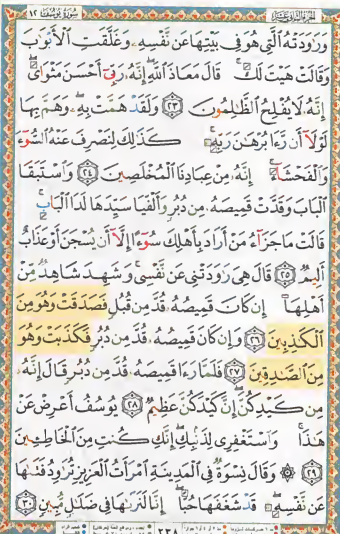 سُورَةُ يُوسُفَ ١٢
وَرَٰوَدَتْهُ ٱلَّتِي هُوَ فِي بَيْتِهَا عَن نَّفْسِهِۦ وَغَلَّقَتِ ٱلْأَبْوَٰبَ
وَقَالَتْ هَيْتَ لَكَ ۚ قَالَ مَعَاذَ ٱللَّهِ ۖ إِنَّهُۥ رَبِّيٓ أَحْسَنَ مَثْوَايَ ۖ
إِنَّهُۥ لَا يُفْلِحُ ٱلظَّٰلِمُونَ ٢٣ وَلَقَدْ هَمَّتْ بِهِۦ ۖ وَهَمَّ بِهَا
لَوْلَآ أَن رَّءَا بُرْهَٰنَ رَبِّهِۦ ۚ كَذَٰلِكَ لِنَصْرِفَ عَنْهُ ٱلسُّوٓءَ
وَٱلْفَحْشَآءَ ۚ إِنَّهُۥ مِنْ عِبَادِنَا ٱلْمُخْلَصِينَ ٢٤ وَٱسْتَبَقَا
ٱلْبَابَ وَقَدَّتْ قَمِيصَهُۥ مِن دُبُرٍ وَأَلْفَيَا سَيِّدَهَا لَدَا ٱلْبَابِ ۚ
قَالَتْ مَا جَزَآءُ مَنْ أَرَادَ بِأَهْلِكَ سُوٓءًا إِلَّآ أَن يُسْجَنَ أَوْ عَذَابٌ
أَلِيمٌ ٢٥ قَالَ هِيَ رَٰوَدَتْنِي عَن نَّفْسِي ۚ وَشَهِدَ شَاهِدٌ مِّنْ
أَهْلِهَآ إِن كَانَ قَمِيصُهُۥ قُدَّ مِن قُبُلٍ فَصَدَقَتْ وَهُوَ مِنَ
ٱلْكَٰذِبِينَ ٢٦ وَإِن كَانَ قَمِيصُهُۥ قُدَّ مِن دُبُرٍ فَكَذَبَتْ وَهُوَ
مِنَ ٱلصَّٰدِقِينَ ٢٧ فَلَمَّا رَءَا قَمِيصَهُۥ قُدَّ مِن دُبُرٍ قَالَ إِنَّهُۥ
مِن كَيْدِكُنَّ ۖ إِنَّ كَيْدَكُنَّ عَظِيمٌ ٢٨ يُوسُفُ أَعْرِضْ عَنْ
هَٰذَا ۚ وَٱسْتَغْفِرِي لِذَنۢبِكِ ۖ إِنَّكِ كُنتِ مِنَ ٱلْخَاطِـِٔينَ
٢٩ ۞ وَقَالَ نِسْوَةٌ فِي ٱلْمَدِينَةِ ٱمْرَأَتُ ٱلْعَزِيزِ تُرَٰوِدُ فَتَىٰهَا
عَن نَّفْسِهِۦ ۖ قَدْ شَغَفَهَا حُبًّا ۖ إِنَّا لَنَرَىٰهَا فِي ضَلَٰلٍ مُّبِينٍ ٣٠
٢٣٨